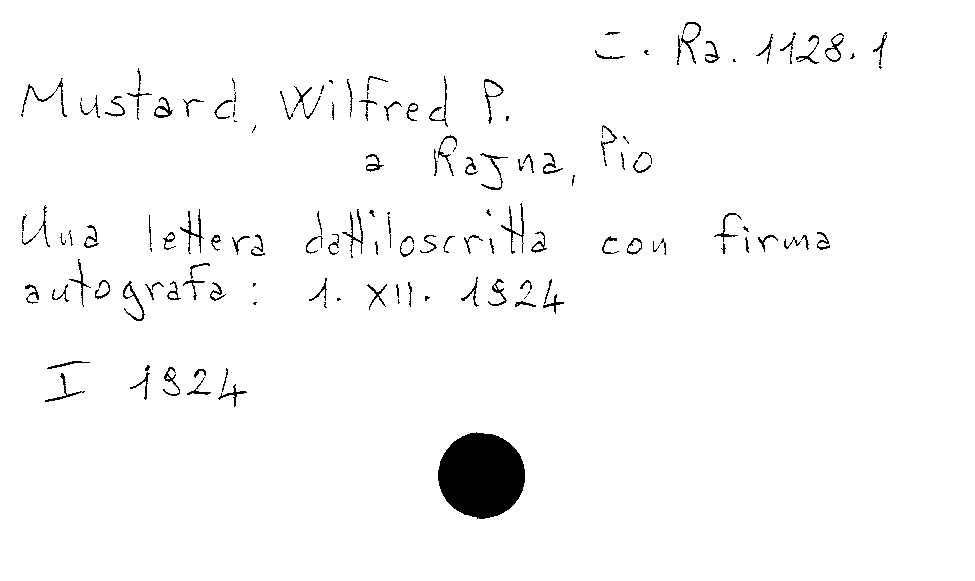 C. Ra. 1128.1
Mustard, Wilfred P.
a Rajna, Pio
Una lettera dattiloscritta con firma
autografa: 1. XII. 1924
I 1924